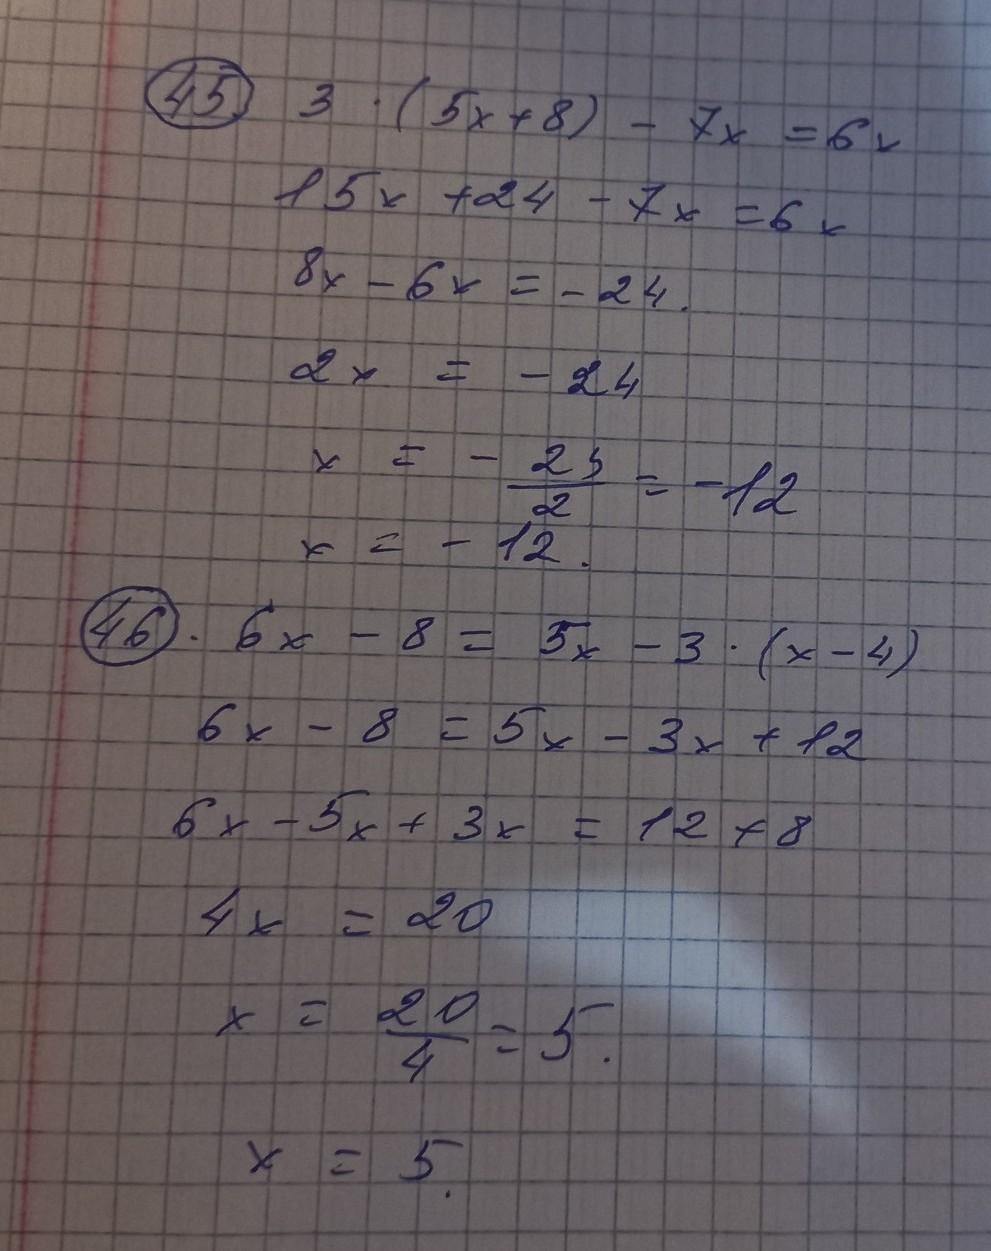 45 3 · (5x+8) - 7x = 6x
15x + 24 - 7x = 6x
8x - 6x = -24.
2x = -24
x = - 24/2 = -12
x = -12.
46. 6x - 8 = 5x - 3 · (x - 4)
6x - 8 = 5x - 3x + 12
6x - 5x + 3x = 12 + 8
4x = 20
x = 20/4 = 5.
x = 5.